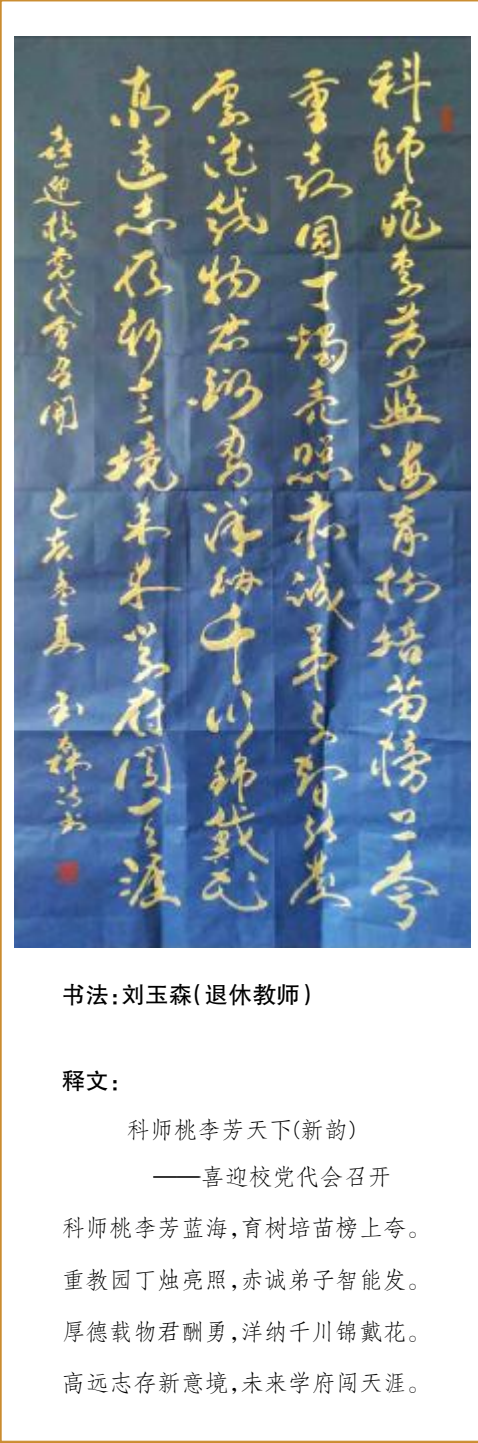 科师桃李芳蓝海育树培苗榜上夸
重教园丁烛亮照赤诚弟子智能发
厚德载物君酬勇洋纳千川锦戴花
高远志存新意境未来学府闯天涯
喜迎校党代会召开 己亥孟夏 玉森诗书
书法：刘玉森（退休教师）
释文：
科师桃李芳天下(新韵)
——喜迎校党代会召开
科师桃李芳蓝海，育树培苗榜上夸。
重教园丁烛亮照，赤诚弟子智能发。
厚德载物君酬勇，洋纳千川锦戴花。
高远志存新意境，未来学府闯天涯。